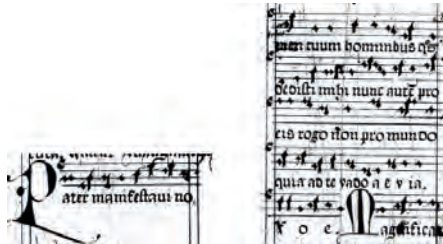 Pater manifestaui no
men tuum hominibus q̄s
dedisti mihi nunc autē pro
eis rogo non pro mundo
quia ad te vado a e v ia.
E v o e. Magnifica